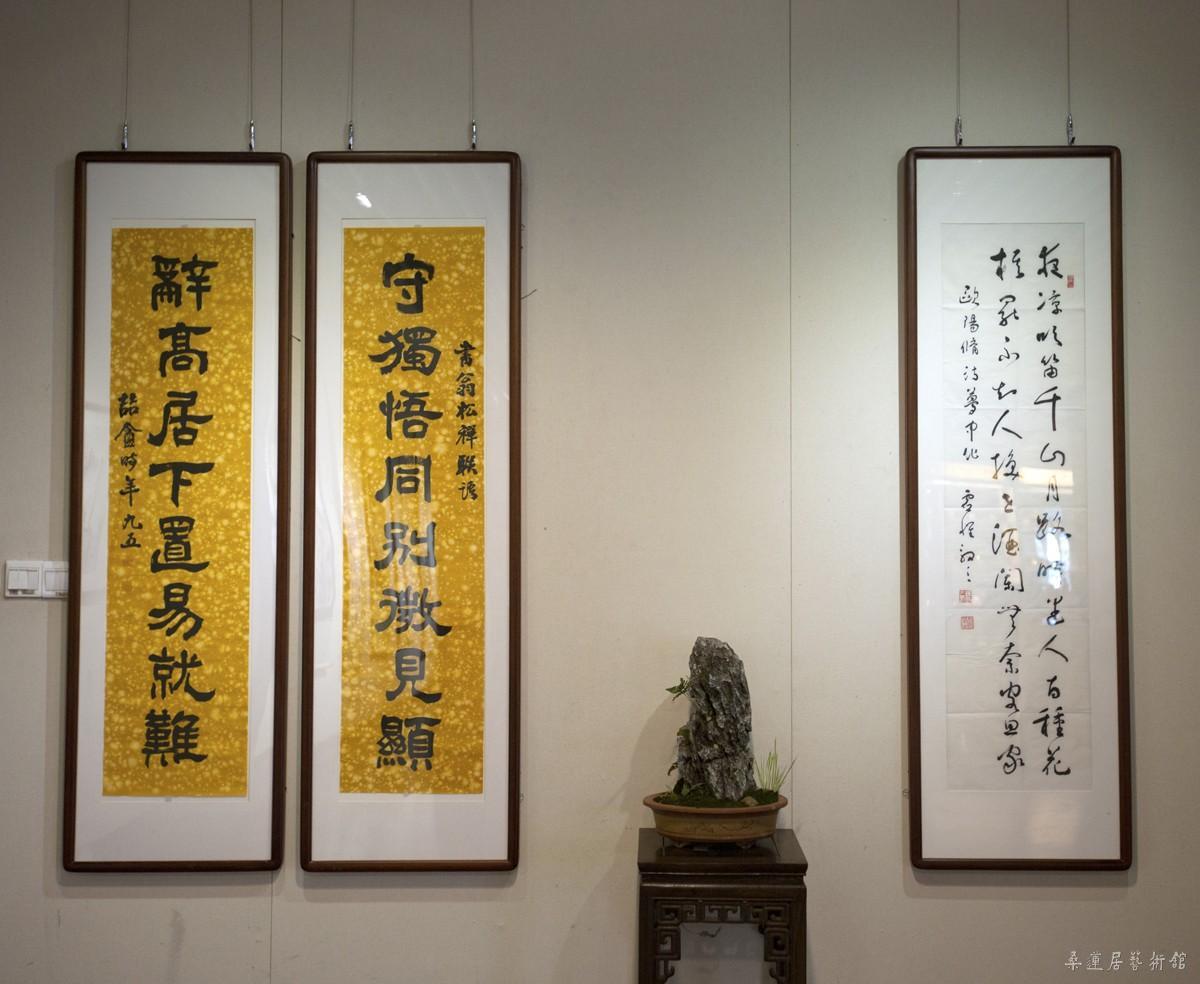 夜凉吹笛千山月路暗迷人百種花
棋罷不知人換世酒闌無奈客思家
歐陽脩詩夢中作
書翁松禪聯語
守獨悟同別微見顯
辭高居下置易就難
喆盦時年九五
桑蓮居藝術館